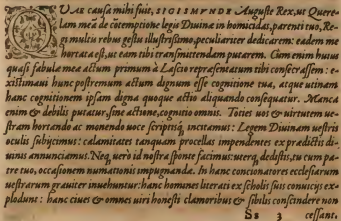 QUAE causa mihi fuit, SIGISMVNDE Auguste Rex, ut Querelam
meā de cōtemptione legis Diuinæ in homicidas, parenti tuo, Regi
multis rebus gestis illustrissimo, peculiariter dedicarem: eadem me
hortata est, ut eam tibi transmittendam putarem. Cum enim huius
quasi fabulæ meæ actum primum à Lascio repræsentatum tibi consecrassem: existimaui
hunc postremum actum dignum esse cognitione tua, atque utinam
hanc cognitionem ipsam digna quoque actio aliquando consequatur. Manca
enim & debilis putatur, sine actione, cognitio omnis. Toties uos & uirtutem uestram
hortando ac monendo uoce scriptisq́; incitamus: Legem Diuinam uestris
oculis subijcimus: calamitates tanquam procellas impendentes ex prædictis diuinis
annunciamus. Neq; uerò id nostra sponte facimus: uterq; dedistis, tu cum patre
tuo, occasionem nominatim impugnanda. In hanc concionatores ecclesiarum
uestrarum grauiter inuehuntur: hanc homines literati ex scholis suis conuicijs explodunt:
hanc ciues & omnes uiri honesti clamoribus & sibilis conscindere non
Ss 3 cessant.